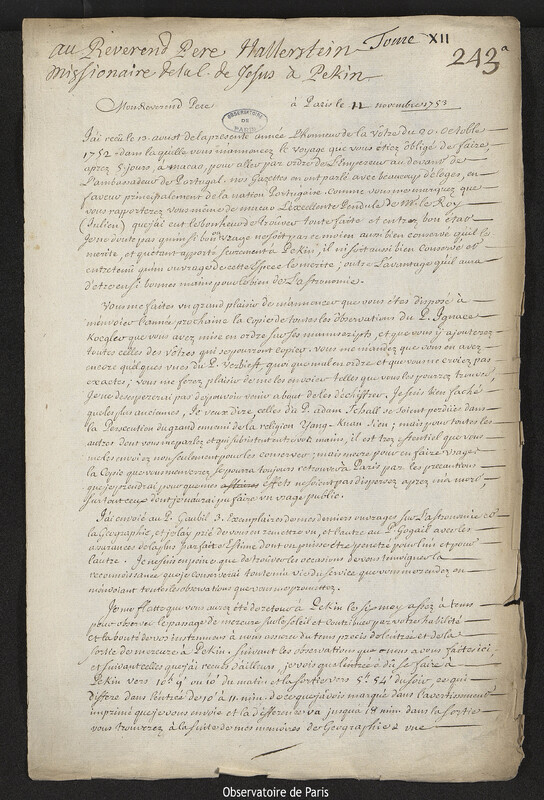 Tome XII
243a
au Reverend Pere Hallerstein
Missionaire de la C. de Jesus a Pekin
Mon Reverend Pere
à Paris le 12 novembre 1753
OBSERVATOIRE DE PARIS
J'ai recû le 19 aoust de la presente année l'honneur de la vôtre du 20. octobre
1752 dans laquelle vous m'annoncez le voyage que vous étiez obligé de faire,
aprez 5 jours, à macao, pour aller par ordre de l'Empereur au devant de
l'ambassadeur de Portugal. nos Gazettes en ont parlé avec beaucoup d'éloges, en
faveur principalement de la nation Portugaise. comme vous me marquez que
vous raporterez vous même de macao l'excellente Pendule de Mr. le Roy
(Julien) que j'ai eut le bonheur de trouver toute faite et en trez bon état
Je ne doute pas qu'un si bon ouvrage ne soit par ce moien aussi bien conservé qu'il le
merite, et qu'etant aporté seurement à Pekin, il n'i soit aussi bien conservé et
entretenu qu'un ouvrage de cette Espece le merite; outre l'avantage qu'il aura
d'etre en si bonnes mains pour le bien de l'astronomie.
Vous me faites un grand plaisir de m'annoncer que vous étes disposé à
m'envoier l'année prochaine la Copie de toutes les observations du P. Ignace
Koegler que vous avez mise en ordre sur ses manuscripts, et que vous y ajouterez
toutes celles des vôtres qui se pouront copier. vous me mandez que vous en avez
encore quelques unes du P. Verbiest, quoique nul en ordre et que vous ne croiez pas
exactes; vous me ferez plaisir de me les envoier telles que vous les pourrez trouver,
Je ne desespererai pas de pouvoir venir a bout de les déchiffrer. Je suis bien faché
que les plus anciennes, Je veux dire, celles du P. adam Schall se soient perdües dans
la Persecution du grand ennemi de la religion Yang-Kuan Sien; mais pour toutes les
autres dont vous me parlez et qui subsistent entre vos mains, il est trez essentiel que vous
me les envoiez non seulement pour les conserver; mais encore pour en faire usage
la Copie que vous m'enverrez se poura toujours retrouver à Paris par les precautions
que je prendrai pour que mes effets ne soient pas dispersez aprez ma mort,
sur tout ceux dont je n'aurai pu faire un usage public.
J'ai envoié au P. Gaubil 3. exemplaires de mes derniers ouvrages sur l'astronomie et
la Geographie, et je l'ay prié de vous en remettre un, et l'autre au P. Gogail avec les
assurances de la plus parfaite Estime dont on puisse être penetré pour lui et pour
l'autre. Je ne suis en peine que de trouver les occasions de vous temoigner la
reconnoissance que je conserverai toute ma vie du service que vous me rendez en
m'envoiant toutes les observations que vous me promettez.
Je me flatte que vous aurez été de retour à Pekin le 6 may assez à tems
pour observer le passage de mercure sur le soleil et contribuer par votre habileté
et la bonté de vos instrumens à nous assurer du tems precis de l'entrée et de la
sortie de mercure à Pekin. Suivant les observations que nous avons faites ici,
et suivant celles que j'ai recûes d'ailleurs, je vois que l'entrée a dû se faire à
Pekin vers 10h 9' ou 10' du matin et la sortie vers 5h 54' du soir, ce qui
differe dans l'entrée de 10 à 11 min. de ce que j'avois marqué dans l'avertissement
imprimé que je vous envoie et la difference va jusqu'à 18 min. dans la sortie
vous trouverez à la suite de mes memoires de Geographie
Observatoire de Paris